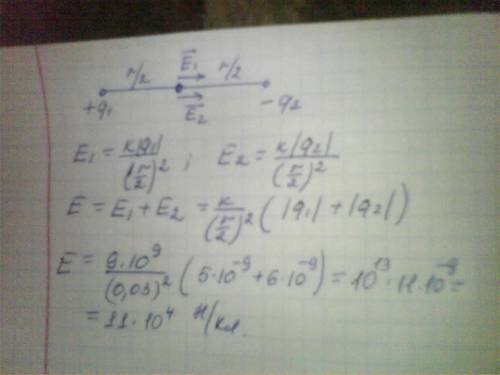 r/2 E₁ r/2
+q₁ E₂ -q₂
E₁ = k|q₁| / (r/2)² ; E₂ = k|q₂| / (r/2)²
E = E₁ + E₂ = k / (r/2)² (|q₁| + |q₂|)
E = 9·10⁹ / (0,03)² (5·10⁻⁹ + 6·10⁻⁹) = 10¹³·11·10⁻⁹ =
= 11·10⁴ Н/Кл.